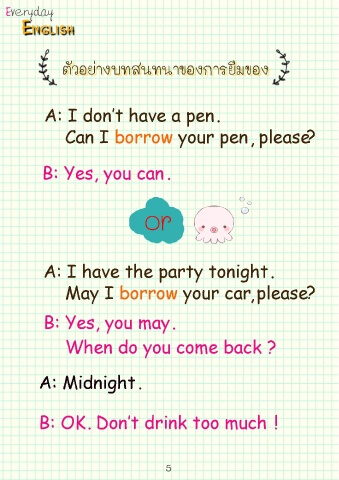 Everyday
ENGLISH
ตัวอย่างบทสนทนาของการยืมของ
A: I don't have a pen.
Can I borrow your pen, please?
B: Yes, you can.
or
A: I have the party tonight.
May I borrow your car,please?
B: Yes, you may.
When do you come back ?
A: Midnight.
B: OK. Don't drink too much !
5